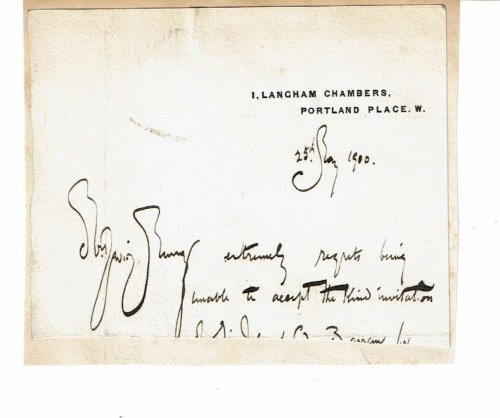 1, LANGHAM CHAMBERS,
PORTLAND PLACE. W.
25th May 1900.
extremely regrets being
unable to accept the kind invitation